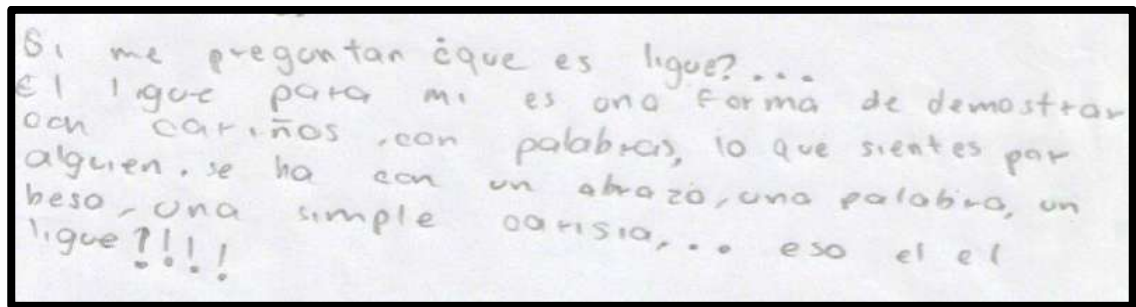 Si me preguntan ¿que es ligue?...
El ligue para mi es una forma de demostrar
con cariños, con palabras, lo que sientes por
alguien. se ha con un abrazo, una palabra, un
beso, una simple carisia,... eso el el
ligue?!!!!